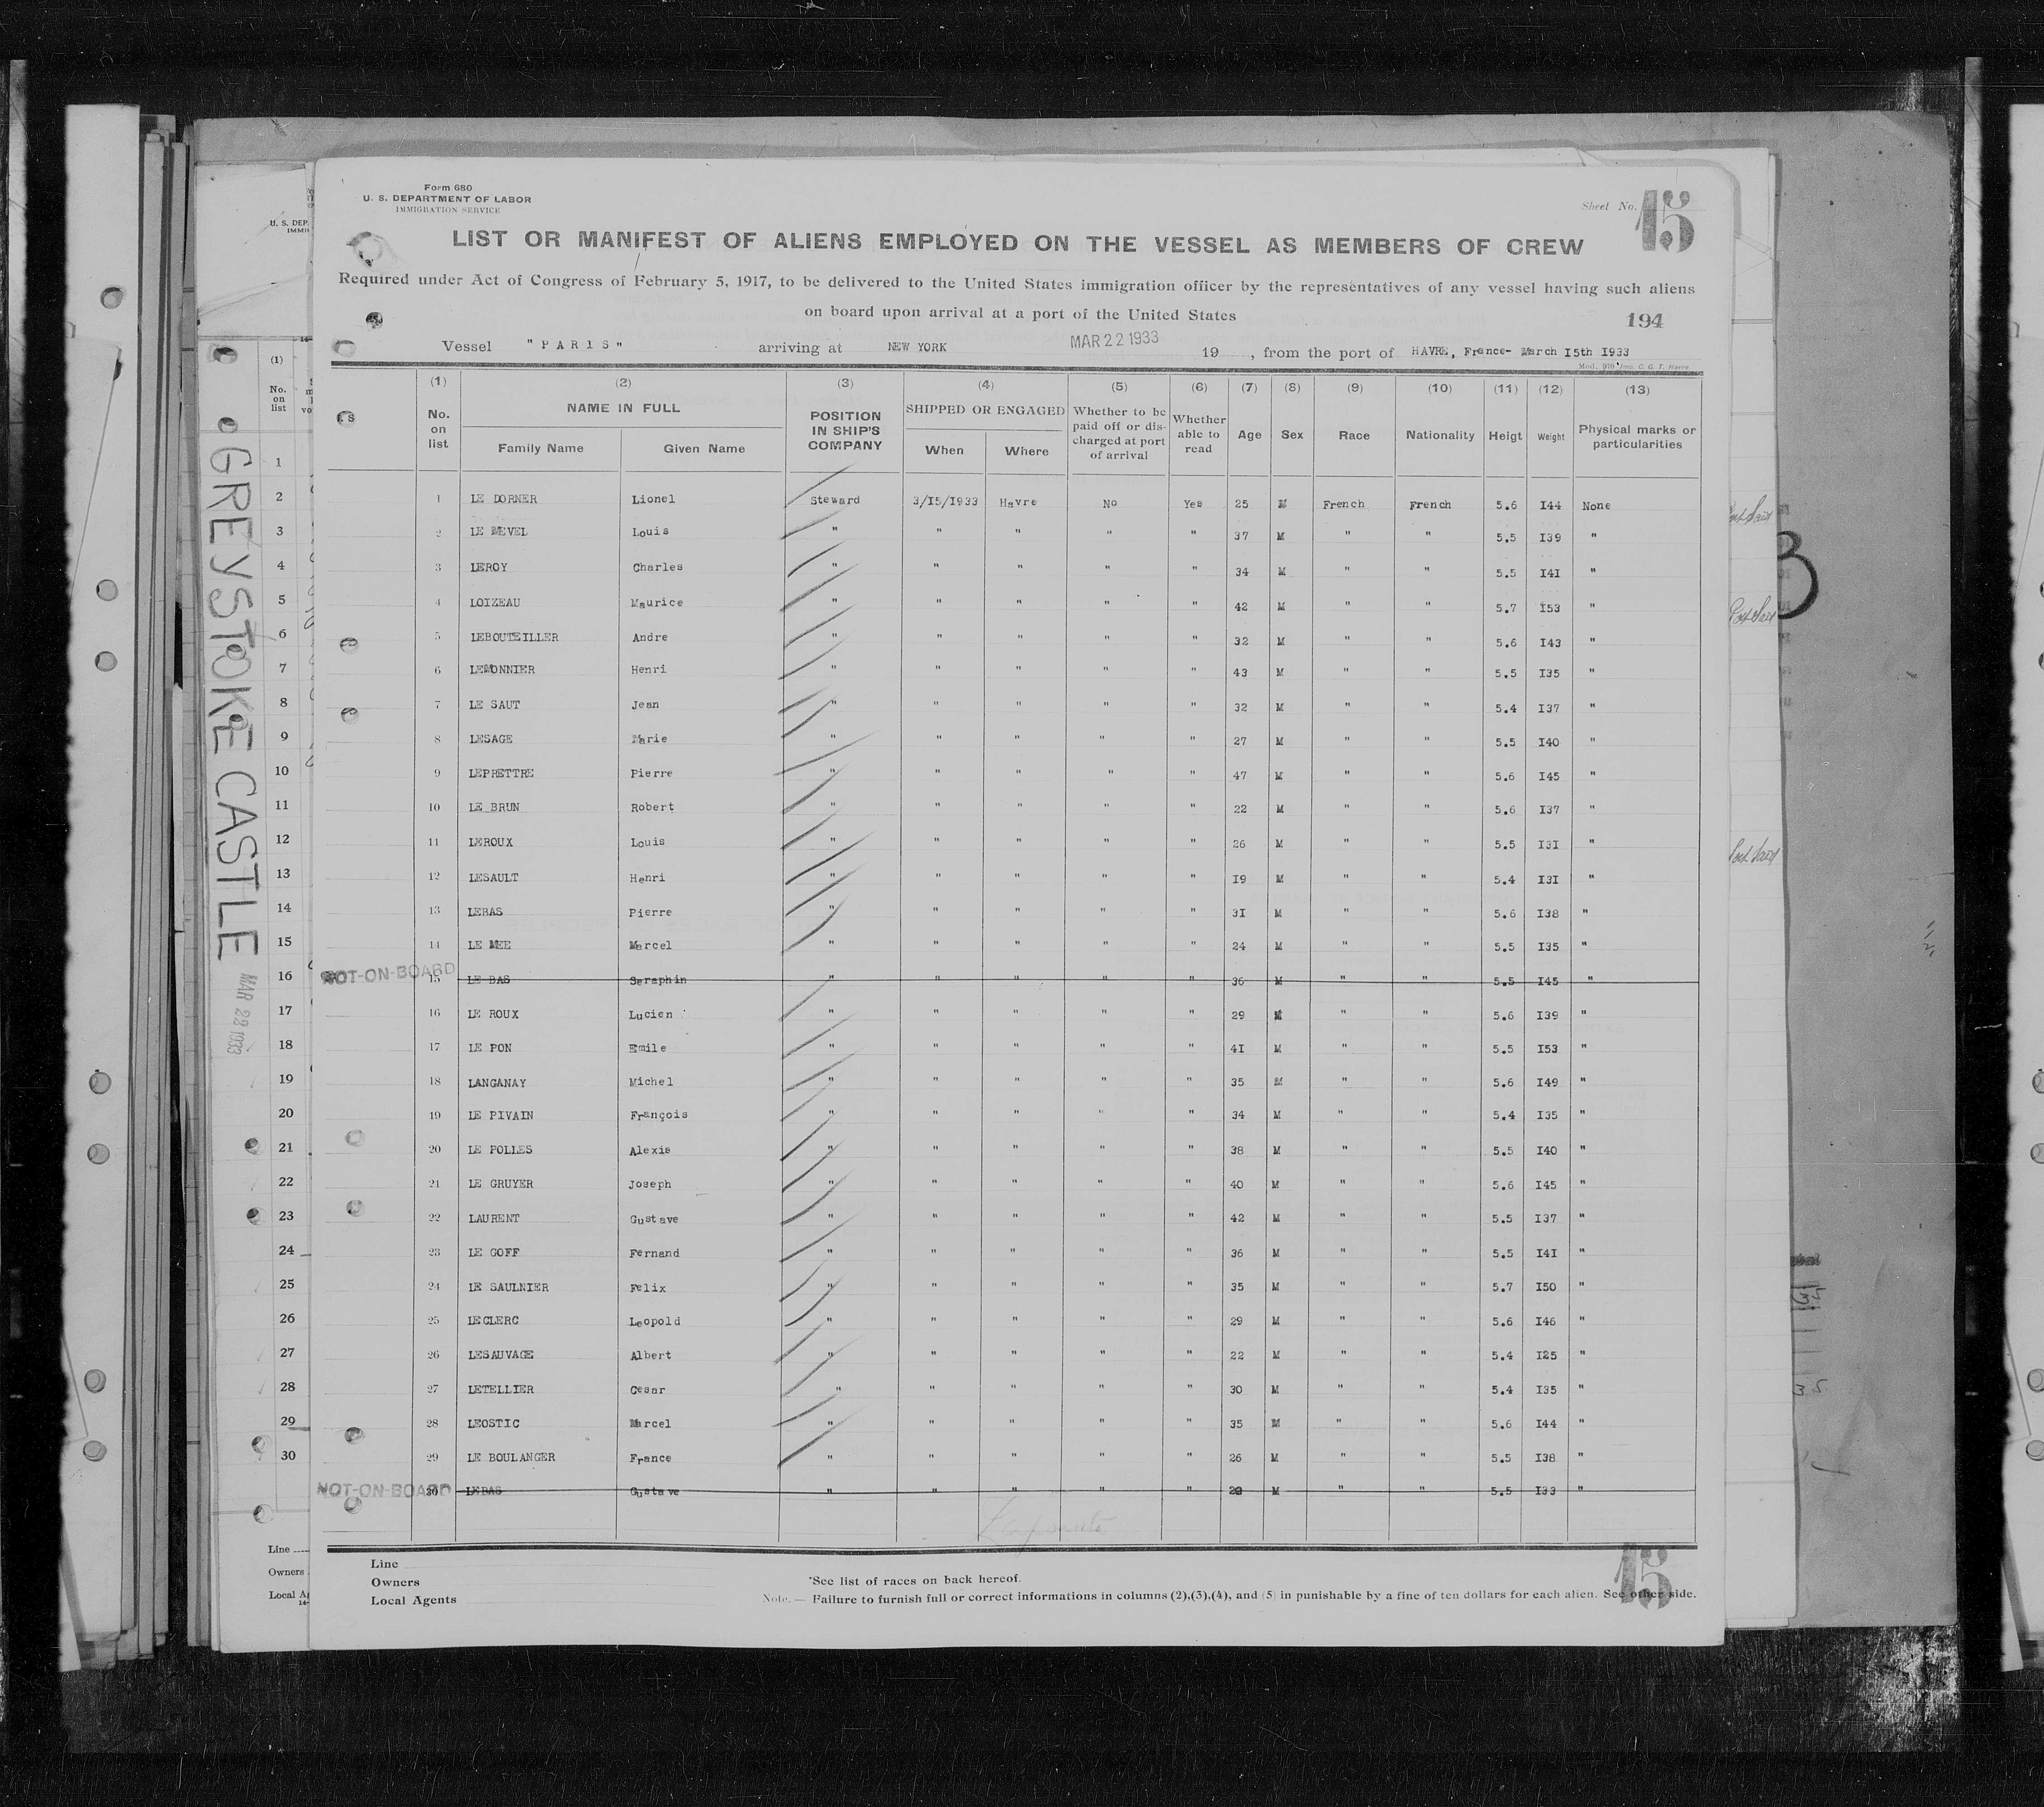 Form 680
U. S. DEPARTMENT OF LABOR
IMMIGRATION SERVICE
Sheet No. 15
LIST OR MANIFEST OF ALIENS EMPLOYED ON THE VESSEL AS MEMBERS OF CREW
Required under Act of Congress of February 5, 1917, to be delivered to the United States immigration officer by the representatives of any vessel having such aliens
on board upon arrival at a port of the United States
194
Vessel "PARIS" arriving at NEW YORK MAR 22 1933 19 , from the port of HAVRE, France- March I5th I933
(1) (2) (3) (4) (5) (6) (7) (8) (9) (10) (11) (12) (13)
No. on list NAME IN FULL Family Name Given Name POSITION IN SHIP'S COMPANY SHIPPED OR ENGAGED When Where Whether to be paid off or discharged at port of arrival Whether able to read Age Sex Race Nationality Heigt Weight Physical marks or particularities
1 LE DORNER Lionel Steward 3/I5/I933 Havre No Yes 25 M French French 5.6 I44 None
2 LE MEVEL Louis " " " " " 37 M " " 5.5 I39 "
3 LEROY Charles " " " " " 34 M " " 5.5 I4I "
4 LOIZEAU Maurice " " " " " 42 M " " 5.7 I53 "
5 LEBOUTEILLER Andre " " " " " 32 M " " 5.6 I43 "
6 LEMONNIER Henri " " " " " 43 M " " 5.5 I35 "
7 LE SAUT Jean " " " " " 32 M " " 5.4 I37 "
8 LESAGE Marie " " " " " 27 M " " 5.5 I40 "
9 LEPRETTRE Pierre " " " " " 47 M " " 5.6 I45 "
10 LE BRUN Robert " " " " " 22 M " " 5.6 I37 "
11 LEROUX Louis " " " " " 26 M " " 5.5 I3I "
12 LESAULT Henri " " " " " I9 M " " 5.4 I3I "
13 LEBAS Pierre " " " " " 3I M " " 5.6 I38 "
14 LE MEE Marcel " " " " " 24 M " " 5.5 I35 "
NOT-ON-BOARD 15 LE BAS Seraphin " " " " " 36 M " " 5.5 I45 "
16 LE ROUX Lucien " " " " " 29 M " " 5.6 I39 "
17 LE PON Emile " " " " " 4I M " " 5.5 I53 "
18 LANGANAY Michel " " " " " 35 M " " 5.6 I49 "
19 LE PIVAIN François " " " " " 34 M " " 5.4 I35 "
20 LE FOLLES Alexis " " " " " 38 M " " 5.5 I40 "
21 LE GRUYER Joseph " " " " " 40 M " " 5.6 I45 "
22 LAURENT Gustave " " " " " 42 M " " 5.5 I37 "
23 LE GOFF Fernand " " " " " 36 M " " 5.5 I4I "
24 LE SAULNIER Felix " " " " " 35 M " " 5.7 I50 "
25 LECLERC Leopold " " " " " 29 M " " 5.6 I46 "
26 LESAUVAGE Albert " " " " " 22 M " " 5.4 I25 "
27 LETELLIER Cesar " " " " " 30 M " " 5.4 I35 "
28 LEOSTIC Marcel " " " " " 35 M " " 5.6 I44 "
29 LE BOULANGER France " " " " " 26 M " " 5.5 I38 "
NOT-ON-BOARD 30 LEBAS Gustave " " " " " M " " 5.5 I33 "
Line
Owners
Local Agents
*See list of races on back hereof.
Note. — Failure to furnish full or correct informations in columns (2),(3),(4), and (5) in punishable by a fine of ten dollars for each alien. See other side.
15
GREYSTOKE CASTLE MAR 22 1933
U. S. DEP
IMMI
(1)
No. on list
1
2
3
4
5
6
7
8
9
10
11
12
13
14
15
16
17
18
19
20
21
22
23
24
25
26
27
28
29
30
Line
Owners
Local A
Port Said
Port Said
Port Said